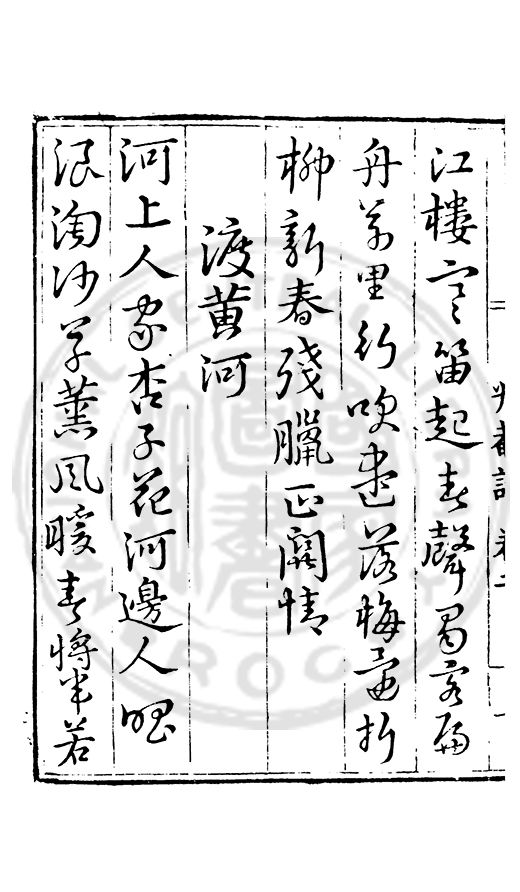 江樓寒笛起春聲蜀客扁
舟萬里行吹盡落梅折
柳新春殘臘正關情
渡黄河
河上人家杏子花河邊人唱
浪淘沙草薰風暖春將半若